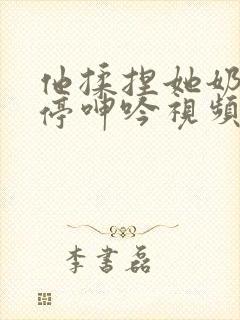 他揉捏她奶
停呻吟視頻
李書磊